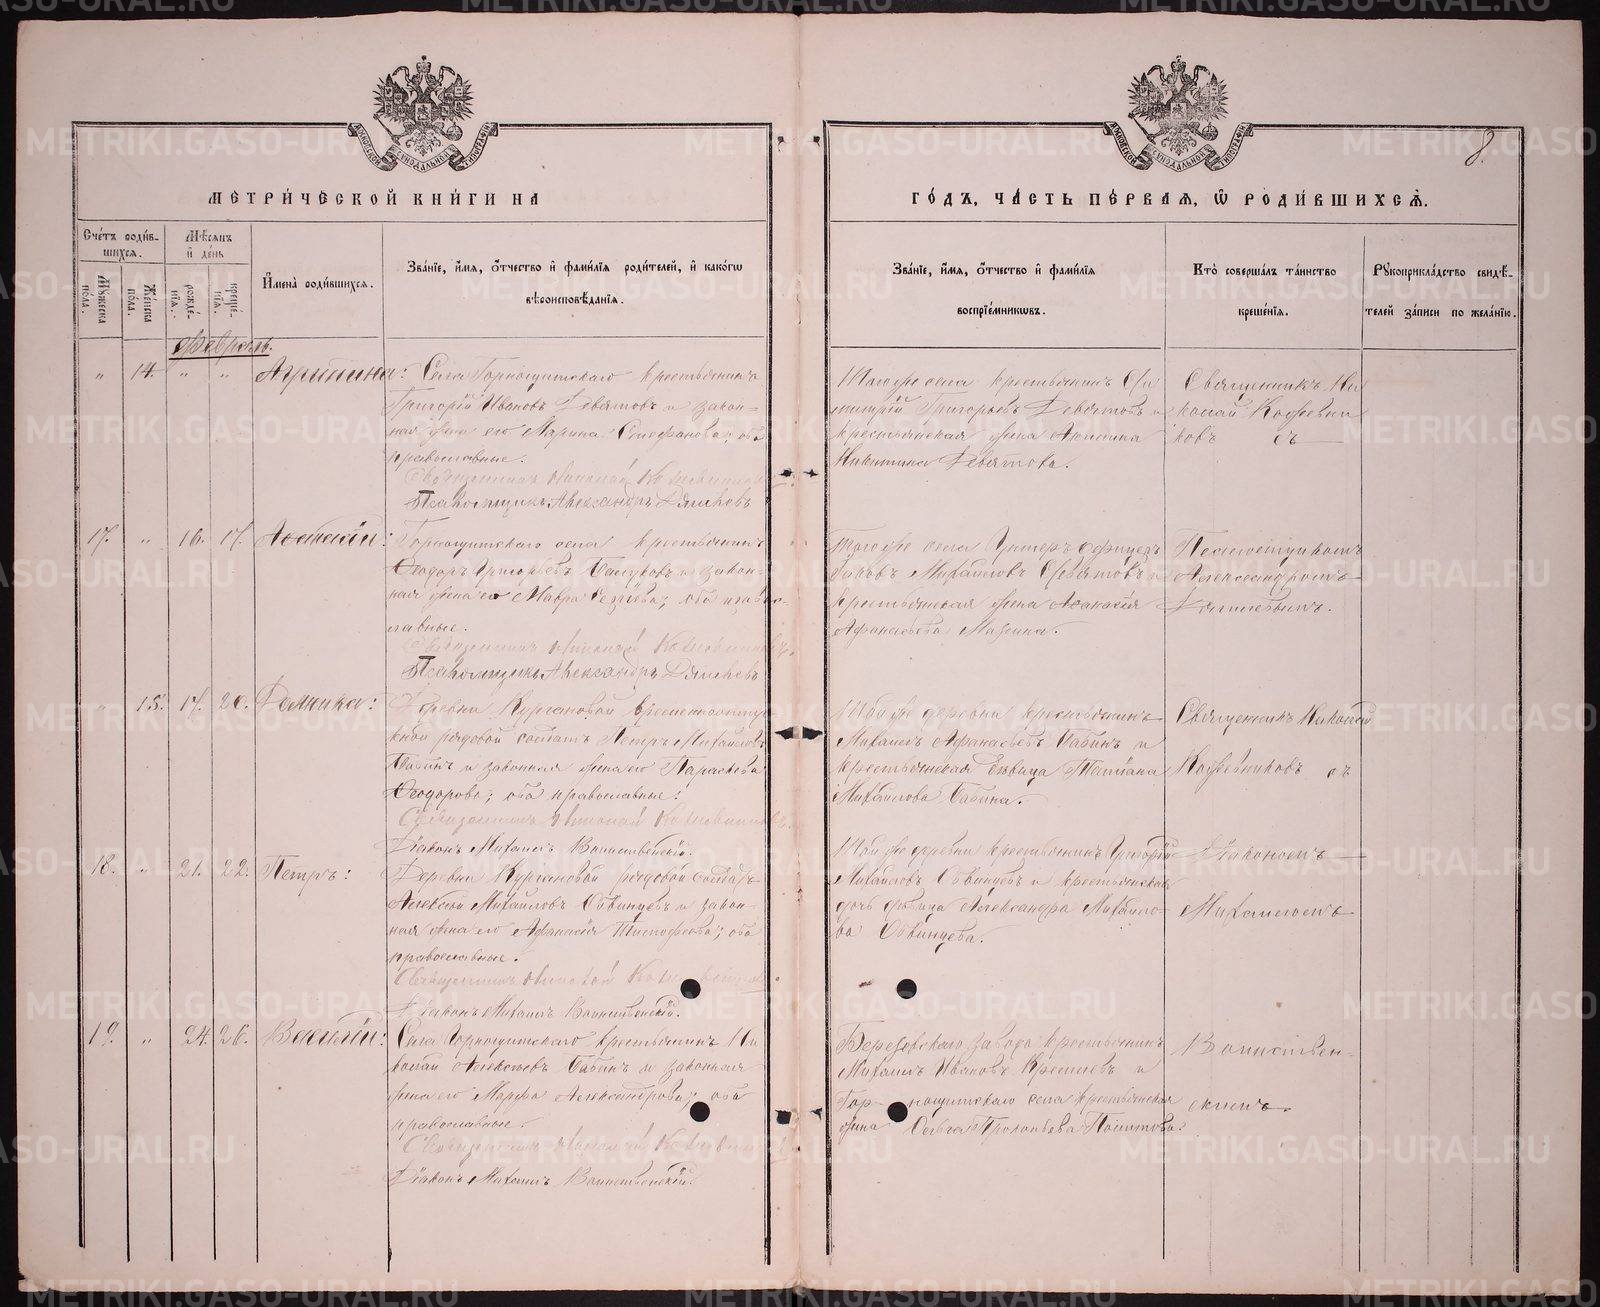 МЕТРИ́ЧЕСКОЙ КНИ́ГИ НА
ГО́ДЪ, ЧА́СТЬ ПЕ́РВАЯ, Ѡ РОДИ́ВШИХСѦ.
8.
Сче́тъ роди́в-
шихся.
Мужеска по́ла.
Же́нска по́ла.
Мѣ́сяцъ
и де́нь
рожде́-
нїя.
креще́-
нїя.
И҆мена̀ роди́вшихся.
Зва́нїе, и҆́мя, о҆́тчество и҆ фами́лїя роди́телей, и҆ како́гѡ
вѣроисповѣ́данїя.
Зва́нїе, и҆́мя, о҆́тчество и҆ фами́лїя
воспрїе́мникѡвъ.
Кто̀ соверша́лъ та́инство
креще́нїя.
Рꙋкоприкла́дство свидѣ́-
телей за́писи по жела́нїю.
Февраль.
" 14. " " Агрипина:
Села Горнощитскаго крестьянинъ
Григорій Ивановъ Девятовъ и закон-
ная жена его Марина Стефанова; оба
православные.
Священникъ Николай Кожевниковъ
Псаломщикъ Александръ Дягилевъ
Того же села крестьянинъ Ди
митрій Григорьевъ Девятовъ и
крестьянская жена
Никитина Девятова.
Священникъ Ни
колай Кожевни
ковъ съ
17. " 16. 17.
Горнощитскаго села крестьянинъ
Ѳеодоръ Григорьевъ и закон-
ная жена его Мавра; оба право-
славные.
Священникъ Николай Кожевниковъ.
Псаломщикъ Александръ Дягилевъ
Того же села Унтеръ офицеръ
Михайловъ Девятовъ и
крестьянская жена Аѳанасія
Афанасьева
Псаломщикомъ
Александромъ
Дягилевымъ.
" 15. 17. 20. Домника:
Деревни Кургановой временноотпус
кной рядовой солдатъ Петръ Михайловъ
Бабинъ и законная жена его Параскева
Ѳеодорова; оба православные.
Священникъ Николай Кожевниковъ.
Діаконъ Михаилъ Воинственскій.
Той же деревни крестьянинъ
Михаилъ Афанасьевъ Бабинъ и
крестьянская девица Татіана
Михайлова Бабина.
Священникъ Николай
Кожевниковъ съ
18. " 21. 22. Петръ:
Деревни Кургановой рядовой солдатъ
Алексій Михайловъ Обвинцевъ и закон-
ная жена его Афанасія Тимофеева; оба
православные.
Священникъ Николай Кожевниковъ
Діаконъ Михаилъ Воинственскій.
Той же деревни крестьянинъ Григорій
Михайловъ Обвинцевъ и крестьянская
дочь девица Александра Михайло-
ва Обвинцева.
Діакономъ
Михаиломъ
19. " 24. 26. Василій:
Села Горнощитскаго крестьянинъ Ни
колай Алексѣевъ Бабинъ и законная
жена его Марфа Александрова; оба
православные.
Священникъ Николай Кожевниковъ
Діаконъ Михаилъ Воинственскій.
Березовскаго завода крестьянинъ
Михаилъ Ивановъ и
Горнощитскаго села крестьянская
жена Ольга Прокопьева
Воинствен-
скимъ.
METRIKI.GASO-URAL.RU